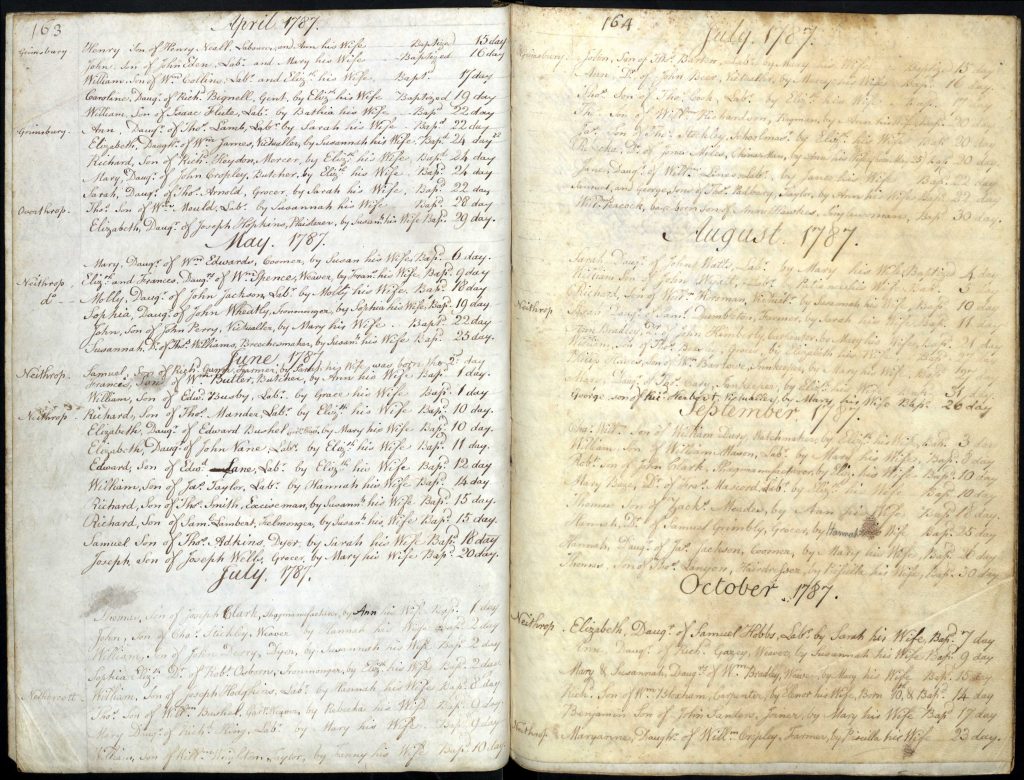 163
April 1787.
Grimsbury Henry, Son of Henry Neall, Labourer, and Ann his Wife Baptized 15 day
John, Son of John Eden, Lab.r and Mary his Wife Baptized 16 day
William, Son of W.m Collins, Lab.r and Eliz.th his Wife, Bap.t 17 day
Caroline, Daug.r of Rich.d Bignell, Gent, by Eliz.th his Wife Baptized 19 day
William, Son of Isaac Flute, Lab.r by Bathia his Wife Bap.d 22 day
Grimsbury Ann, Daug.r of Tho.s Lamb, Lab.r by Sarah his Wife Bap.d 22 day
Elizabeth, Daugh.r of W.m James, Victualler, by Susannah his Wife Bap.d 24 day
Richard, Son of Rich.d Heydon, Mercer, by Eliz.th his Wife Bap.d 24 day
Mary, Daug.r of John Cropley, Butcher, by Eliz.th his Wife Bap.d 24 day
Sarah, Daug.r of Tho.s Arnold, Grocer, by Sarah his Wife, Bap.d 22 day
Overthrop. Tho.s Son of W.m Mould, Lab.r by Susannah his Wife Bap.d 28 day
Elizabeth, Daug.r of Joseph Hopkins, Plaisterer, by Susan.h his Wife Bap.d 29 day.
May. 1787.
Mary, Daug.r of W.m Edwards, Coomer, by Susan his Wife Bap.d 6 day.
Neithrop Eliz.th and Frances, Daug.rs of W.m Spence, Weaver, by Fran.s his Wife Bap.d 9 day
d.o Molly, Daug.r of John Jackson, Lab.r by Molly his Wife, Bap.d 18 day
Sophia, Daug.r of John Wheatly, Ironmonger, by Sophia his Wife, Bap.d 19 day.
John, Son of John Perry, Victualler, by Mary his Wife Bap.d 22 day
Susannah, D.r of Tho.s Williams, Breechesmaker, by Susan.h his Wife Bap.d 25 day.
June 1787.
Neithrop. Samuel, Son of Rich.d Farmer, by his Wife, was born the 2 day
Frances, of W.m Butler, Butcher, by Ann his Wife Bap.d 1 day.
William, Son of Edw.d Busby, Lab.r by Grace his Wife Bap.d 1 day
Neithrop. Richard, Son of Tho.s Mander, Lab.r by Eliz.th his Wife Bap.d 10 day.
Elizabeth, Daug.r of Edward Bushel by Mary his Wife Bap.d 10 day
Elizabeth, Daug.r of John Nane, Lab.r by Eliz.th his Wife, Bap.d 11 day.
Edward, Son of Edw.d Lane, Lab.r by Eliz.th his Wife Bap.d 12 day
William, Son of Ja.s Taylor, Lab.r by Hannah his Wife Bap.d 14 day
Richard, Son of Tho.s Smith, Exciseman, by Susann.h his Wife Bap.d 15 day.
Richard, Son of Sam.l Lambert, Felmonger, by Susan.h his Wife Bap.d 15 day.
Samuel Son of Tho.s Adkins, Dyer, by Sarah his Wife Bap.d 18 day
Joseph, Son of Joseph Wells, Grocer, by Mary his Wife Bap.d 20 day.
July, 1787.
Thomas, Son of Joseph Clark, Shagmanufacturer, by Ann his Wife Bap.d 1 day
John, Son of Tho.s Stickley, Weaver by Hannah his Wife Bap.d 2 day
William, Son of John Dyer, by Susannah his Wife Bap.d 2 day
Sophia Eliz.th D.r of Rob.t Osborn, Ironmonger, by Eliz.th his Wife Bap.d 2 day
William, Son of Joseph Hodgkins, Lab.r by Hannah his Wife Bap.d 8 day
Tho.s Son of Will.m Bushel, by Rebecka his Wife Bap.d 9 day
Mary Daug.r of Rich.d King, Lab.r by Mary his Wife Bap.d 9 day
William, Son of Will.m Taylor, by Fanny his Wife, Bap.d 10 day
164
July. 1787.
Grimsbury. John, Son of Tho.s Barker, Lab.r by Mary his Wife Baptized 15 day
Ann, D.r of John Beer, Victualler, by Mary his Wife Bap.d 16 day.
Tho.s Son of Tho.s Cook, Lab.r by his Wife
Tho.s Son of Will.m Richardson, by Ann his Wife 20 day
Ja.s Son of Tho.s Stokley, Schoolmas.r by Eliz.th his Wife Bap.d 20 day
Rebecka, D.r of Jona.s Miles, Chinaman, by Ann his Wife Bap.d 20 day
Jane, Daug.r of Will.m Lines, Lab.r by Jane his Wife Bap.d 20 day
Samuel, and George, Sons of Tho.s Padbury, Taylor, by Ann his Wife Bap.d 22 day
Will.m Peacock, base born Son of Ann Hawkes, Singlewoman, Bap.d 30 day.
August. 1787.
Sarah, Daug.r of John Watts, Lab.r by Mary his Wife Baptized 4 day
William, Son of John his Wife Bap.d 5
Richard, Son of Will.m Wyman, Victual.r by Susannah his Wife Bap.d 10 day
Neithrop Susan, Daug.r of Sam.l Dumbleton, Farmer, by Sarah his Wife Bap.d 11 day
Ann Bradley, D.r of John Kimberly, Carpenter, by Mary his Wife
Will.m Son of Tho.s Beer, Grocer, by Elizabeth his Wife Bap.d 21 day
Son of W.m Barlow, Innkeeper, by his Wife
Mary, Daug.r of Ja.s Cary, Innkeeper, by Eliz.th his Wife
George Son of Ric.d Herbert, Victualler, by Mary, his Wife Bap.d 26 day
September 1787.
Cha.s Will.m Son of William Dury, Watchmaker, by Eliz.th his Wife Bap.d 3 day
William, Son of William Mason, Lab.r by Mary his Wife Bap.d 8 day
Rob.t Son of John Clark, Shagmanufacturer, by his Wife Bap.d 10 day
Mary Beck, D.r of Fra.s Mascord, Lab.r by Eliz.th his Wife Bap.d 10 day
Thomas Son of Zach.s Meades, by Ann his Wife Bap.d 18 day
Hannah, D.r of Samuel Grimbly, Grocer, by Hannah his Wife Bap.d 25 day
Hannah, Daug.r of Ja.s Jackson, Coomer, by Mary his Wife, Bap.d 26 day
Thomas, Son of Tho.s Langon, Hairdresser, by Priscilla his Wife, Bap.d 30 day
October. 1787.
Neithrop. Elizabeth, Daug.r of Samuel Hobbs, Lab.r by Sarah his Wife Bap.d 7 day
Ann Daug.r of Rich.d Gazey, Weaver, by Susannah his Wife Bap.d 9 day
Mary & Susannah, Daug.rs of W.m Bradley, Weaver, by Mary his Wife Bap.d 15 day.
Rich.d Son of W.m Bloxham, Carpenter, by Honor his Wife, Born 10, & Bap.d 14 day
Benjamin Son of John Sanders, Joiner, by Mary his Wife Bap.d 17 day
Neithrop Maryanne, Daugh.r of Will.m Cropley, Farmer, by Priscilla his Wife 23 day.